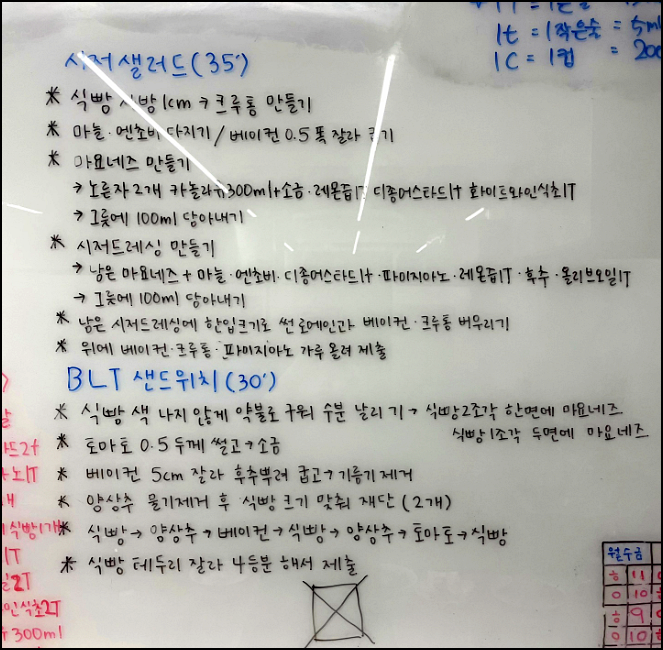 1T = 1큰술 = 15m
1t = 1작은술 = 5ml
1C = 1컵 = 200
시저샐러드(35')
* 식빵 사방 1cm → 크루통 만들기
* 마늘·엔초비 다지기 / 베이컨 0.5 폭 잘라 굽기
* 마요네즈 만들기
→ 노른자 2개 카놀라유300ml+소금·레몬즙1T 디종머스타드1t 화이트와인식초1T
→ 그릇에 100ml 담아내기
* 시저드레싱 만들기
→ 남은 마요네즈 + 마늘·엔초비·디종머스타드1t·파마지아노·레몬즙1T·후추·올리브오일1T
→ 그릇에 100ml 담아내기
* 남은 시저드레싱에 한입크기로 썬 로메인과 베이컨·크루통 버무리기
* 위에 베이컨·크루통·파마지아노 가루 올려 제출
BLT 샌드위치(30')
* 식빵 색 나지 않게 약불로 구워 수분 날리기 → 식빵2조각 한면에 마요네즈
식빵1조각 두면에 마요네즈
* 토마토 0.5 두께 썰고→소금
* 베이컨 5cm 잘라 후추뿌려 굽고→기름기제거
* 양상추 물기제거 후 식빵 크기 맞춰 재단(2개)
* 식빵→양상추→베이컨→식빵→양상추→토마토→식빵
* 식빵 테두리 잘라 4등분 해서 제출
드2t
노1T
식빵1개
1T
일2T
인식초2T
유300ml
월수금
ㅎ 11
ㅇ 10
ㅎ 9
ㅇ 10